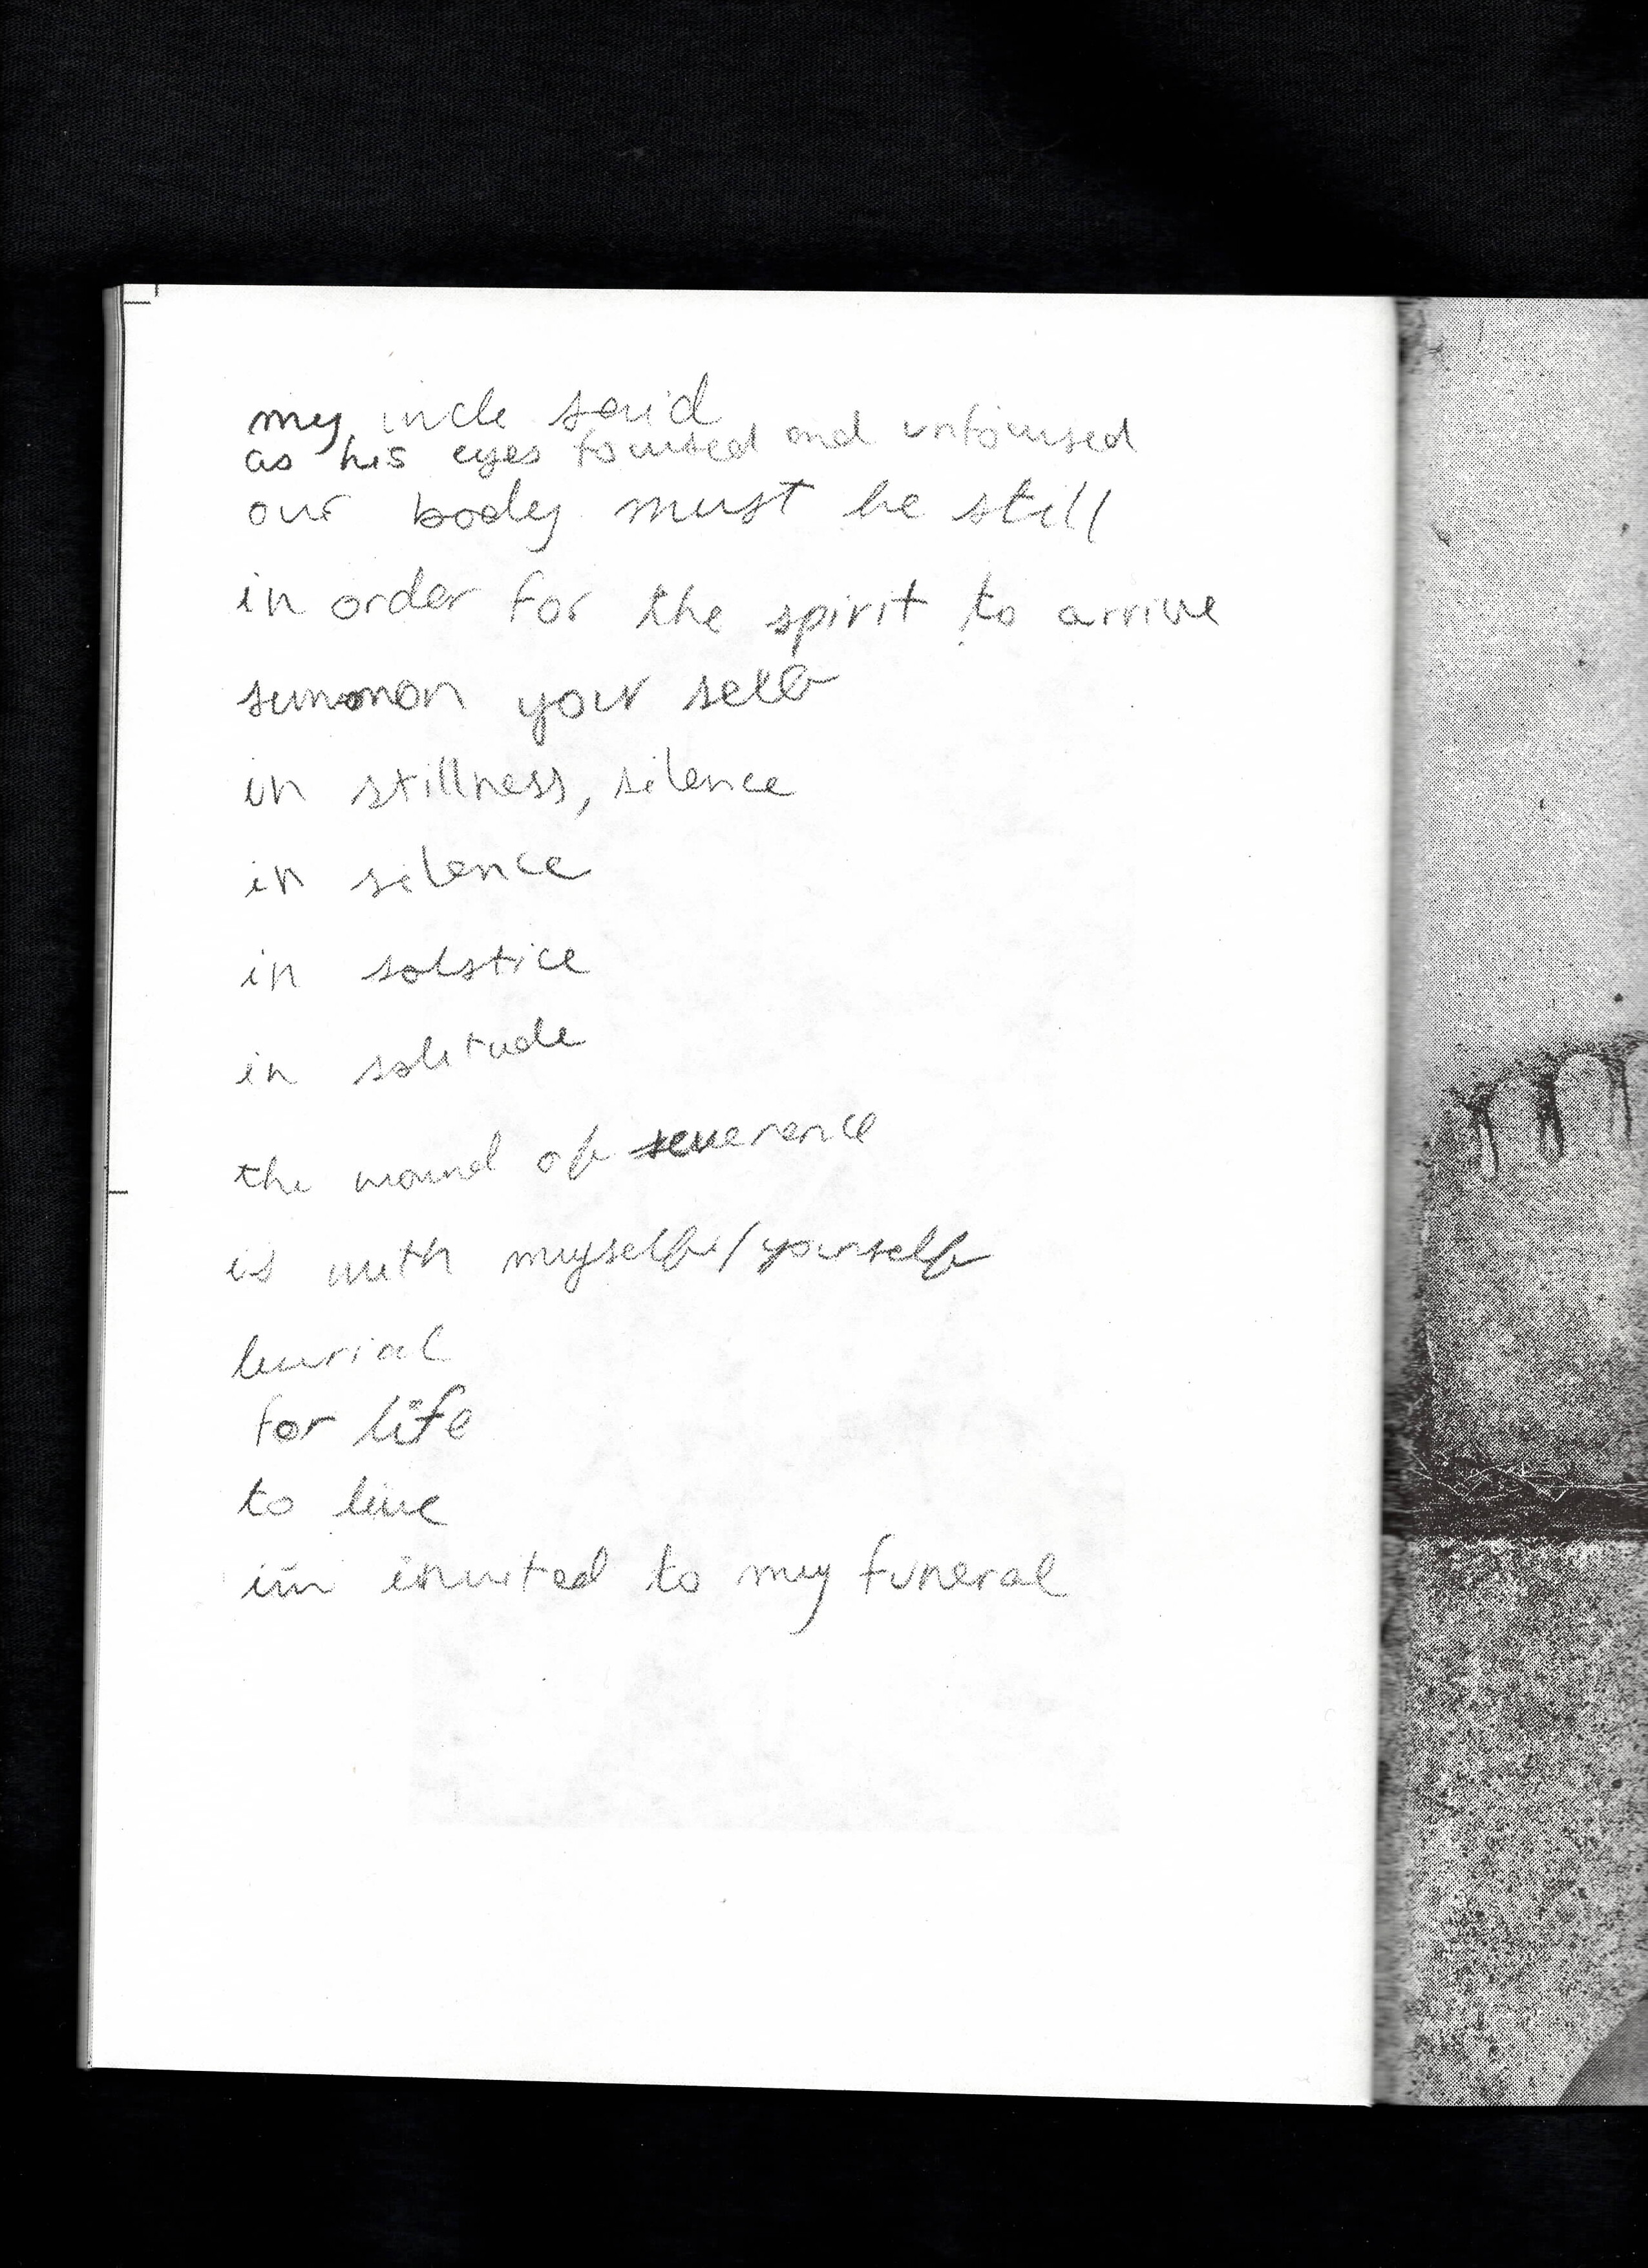 my uncle said
as his eyes focused and unfocused
our body must be still
in order for the spirit to arrive
summon your self
in stillness, silence
in silence
in solstice
in solitude
the wound of reverence
is with myself/yourself
burial
for life
to live
im invited to my funeral